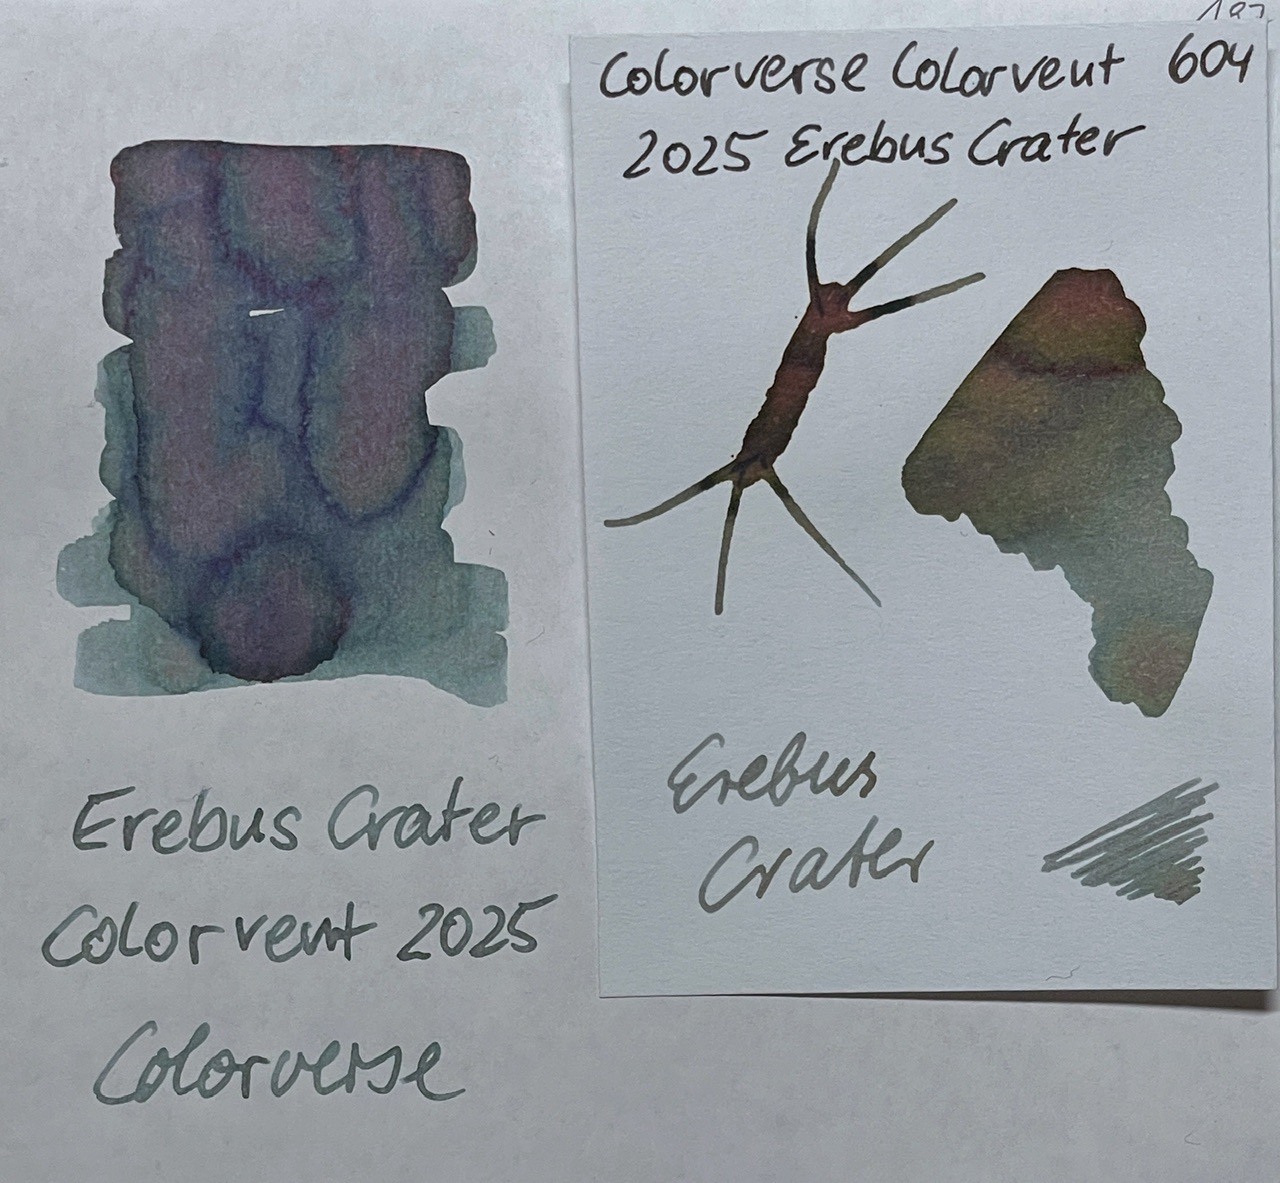 Colorverse Colorvent 604
2025 Erebus Crater
Erebus
Crater
Erebus Crater
Colorvent 2025
Colorverse